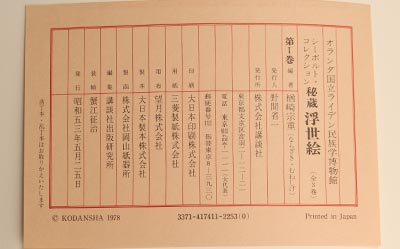 オランダ国立ライデン民族学博物館
シーボルト・コレクション 秘蔵浮世絵 (全3巻)
第1巻
編著 楢崎宗重
発行人 野間省一
発行所 株式会社講談社
東京都文京区音羽二ー一二ー二一
印刷 大日本印刷株式会社
用紙 三菱製紙株式会社
用布 望月株式会社
製本 大日本製本株式会社
製函 株式会社岡山紙器所
編集 講談社出版研究所
装幀 蟹江征治
発行 昭和五三年五月二五日
落丁本・乱丁本はお取りかえいたします
© KODANSHA 1978
3371-417411-2253 (0)
Printed in Japan